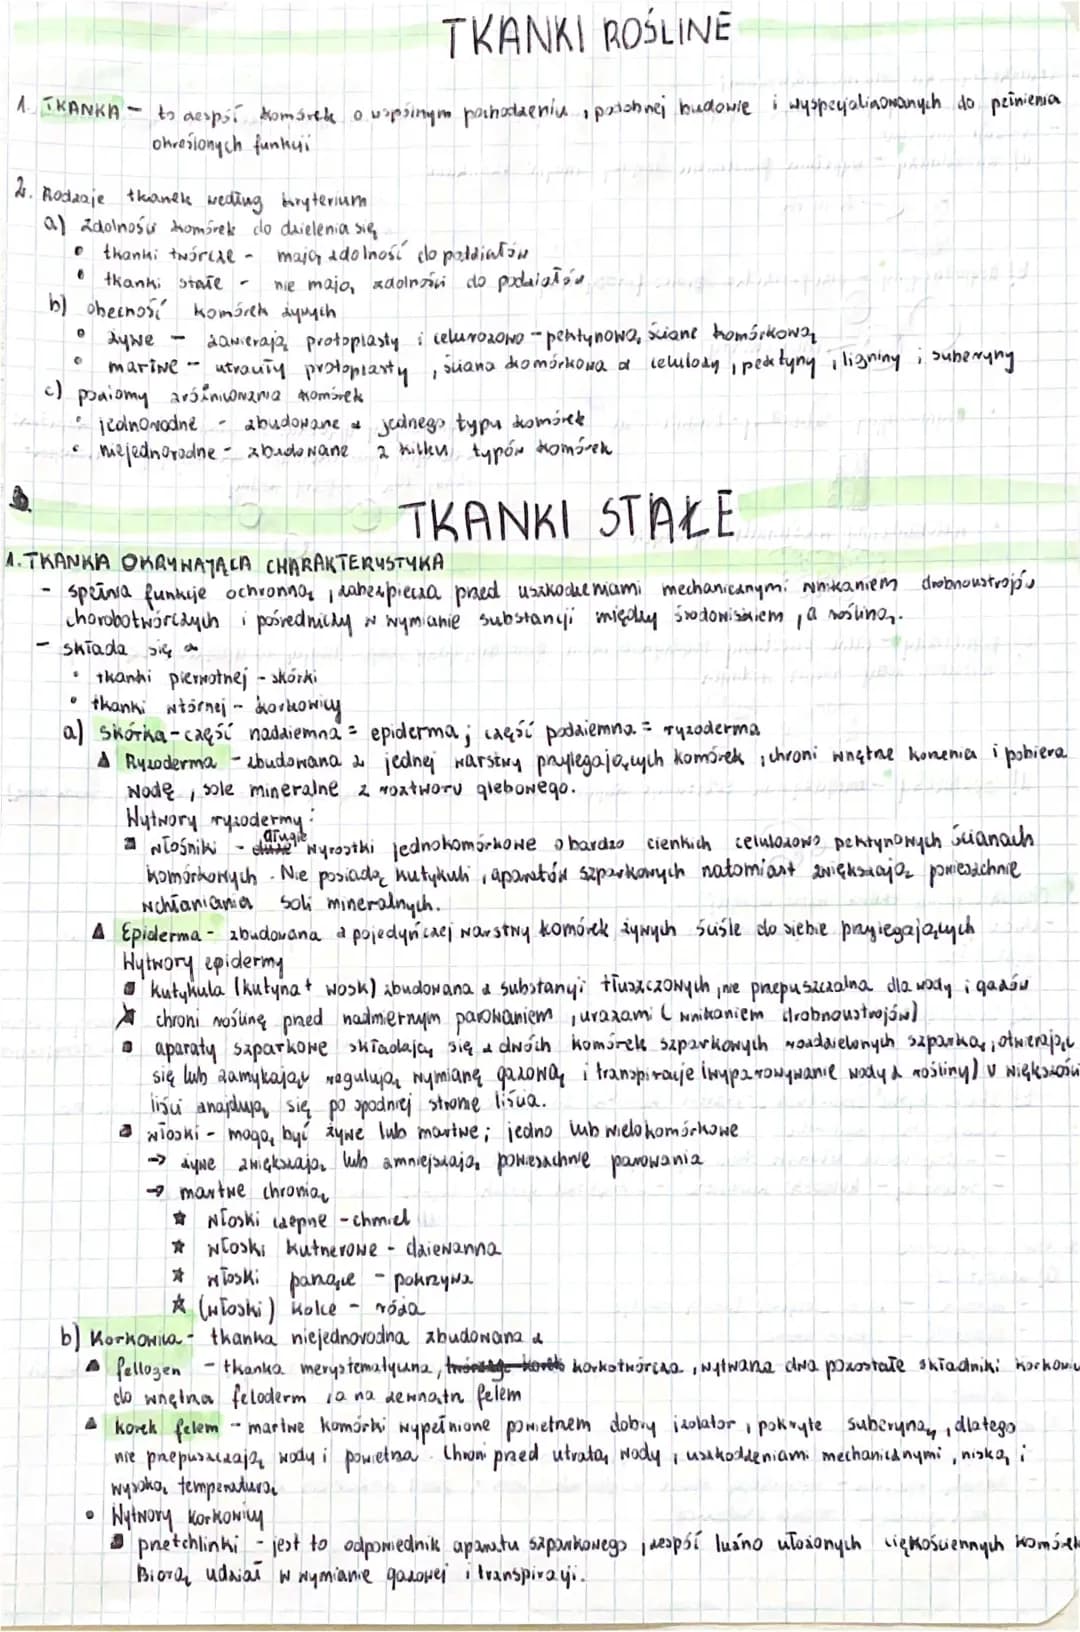 TKANKI ROŚLINE
1. TKANKA - to zespół komórek o wspólnym pochodzeniu, podobnej budowie i wyspecjalizowanych do pełnienia
określonych funkcji
2. Rodzaje tkanek według kryterium
a) zdolności komórek do dzielenia się
• tkanki twórcze - mają zdolność do podziałów
• tkanki stałe - nie mają zdolności do podziałów
b) obecność komórek żywych
• żywe - zawierają protoplasty i celulozowo-pektynową ścianę komórkową
• martwe - utraciły protoplasty, ściana komórkowa z celulozy, pektyny, ligniny i suberyny
c) poziomy zróżnicowania komórek
• jednorodne - zbudowane z jednego typu komórek
• niejednorodne - zbudowane z kilku typów komórek
TKANKI STAŁE
1. TKANKA OKRYWAJĄCA CHARAKTERYSTYKA
- spełnia funkcje ochronną, zabezpiecza przed uszkodzeniami mechanicznymi wnikaniem drobnoustrojów
chorobotwórczych i pośredniczy w wymianie substancji między środowiskiem, a rośliną.
- składa się z
• tkanki pierwotnej - skórki
• tkanki wtórnej - korkowicy
a) skórka - część nadziemna = epiderma; część podziemna = ryzoderma
▲ Ryzoderma - zbudowana z jednej warstwy przylegających komórek, chroni wnętrze korzenia i pobiera
wodę, sole mineralne z roztworu glebowego.
Wytwory ryzodermy:
▪ włośniki - długie wyrostki jednokomórkowe o bardzo cienkich celulozowo pektynowych ścianach
komórkowych. Nie posiadą kutykuli, aparatów szparkowych natomiast zwiększają powierzchnię
wchłaniania soli mineralnych.
▲ Epiderma - zbudowana z pojedyńczej warstwy komórek żywych ściśle do siebie przylegających
Wytwory epidermy
▪ kutykula (kutyna + wosk) zbudowana z substancji tłuszczowych, nie przepuszczalna dla wody i gazów
chroni roślinę przed nadmiernym parowaniem, urazami (wnikaniem drobnoustrojów)
▪ aparaty szparkowe składają się z dwóch komórek szparkowych rozdzielonych szparką, otwierając
się lub zamykając regulują wymianę gazową i transpirację (wyparowywanie wody z rośliny) U większości
liści znajdują się po spodniej stronie liścia.
▪ włoski - mogą być żywe lub martwe; jedno lub wielokomórkowe
→ żywe zwiększają lub zmniejszają powierzchnię parowania
→ martwe chronią
☆ włoski czepne - chmiel
☆ włoski kutnerowe - dziewanna
☆ włoski parzące - pokrzywa
☆ (włoski) kolce - róża
b) Korkowica - tkanka niejednorodna zbudowana z
▲ fellogen - tkanka merystematyczna, korkotwórcza, wytwarza dwa pozostałe składniki korkowicy
do wnętrza feloderm, a na zewnątrz felem
▲ korek felem - martwe komórki wypełnione powietrzem dobry izolator, pokryte suberyną, dlatego
nie przepuszczają wody i powietrza. Chroni przed utratą wody, uszkodzeniami mechanicznymi, niską i
wysoką temperaturą
• Wytwory korkowicy
▪ przetchlinki - jest to odpowiednik aparatu szparkowego, zespół luźno ułożonych cięńkościennych komórek
Biorą udział w wymianie gazowej i transpiracji.